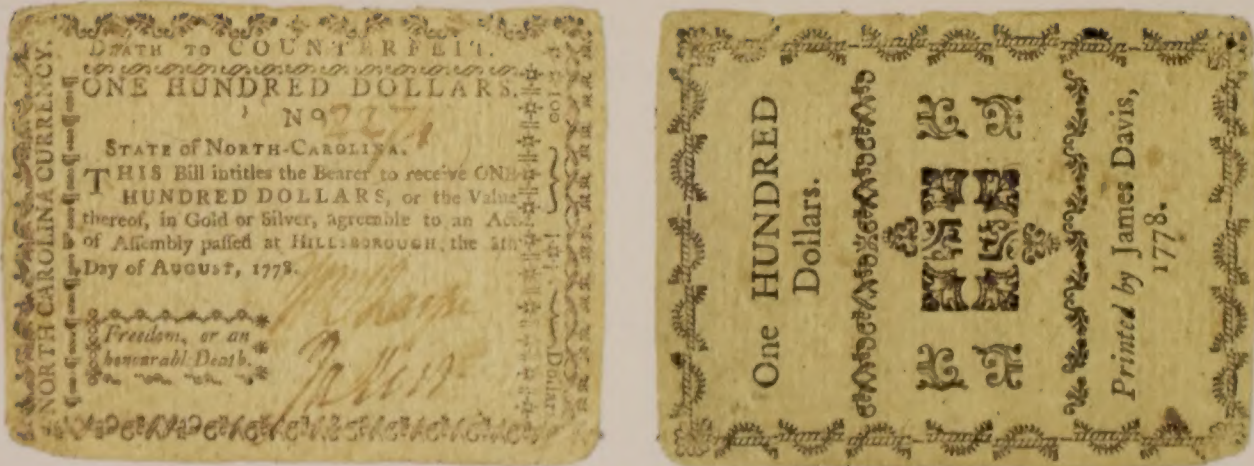 DEATH TO COUNTERFEIT.
ONE HUNDRED DOLLARS.
No
STATE of NORTH-CAROLINA.
THIS Bill intitles the Bearer to receive ONE
HUNDRED DOLLARS, or the Value
thereof, in Gold or Silver, agreeable to an Act
of Assembly passed at HILLSBOROUGH, the 8th
Day of AUGUST, 1778.
Freedom, or an
honourabl Death.
NORTH CAROLINA CURRENCY.
100
Dollar
One HUNDRED
Dollars.
Printed by James Davis,
1778.